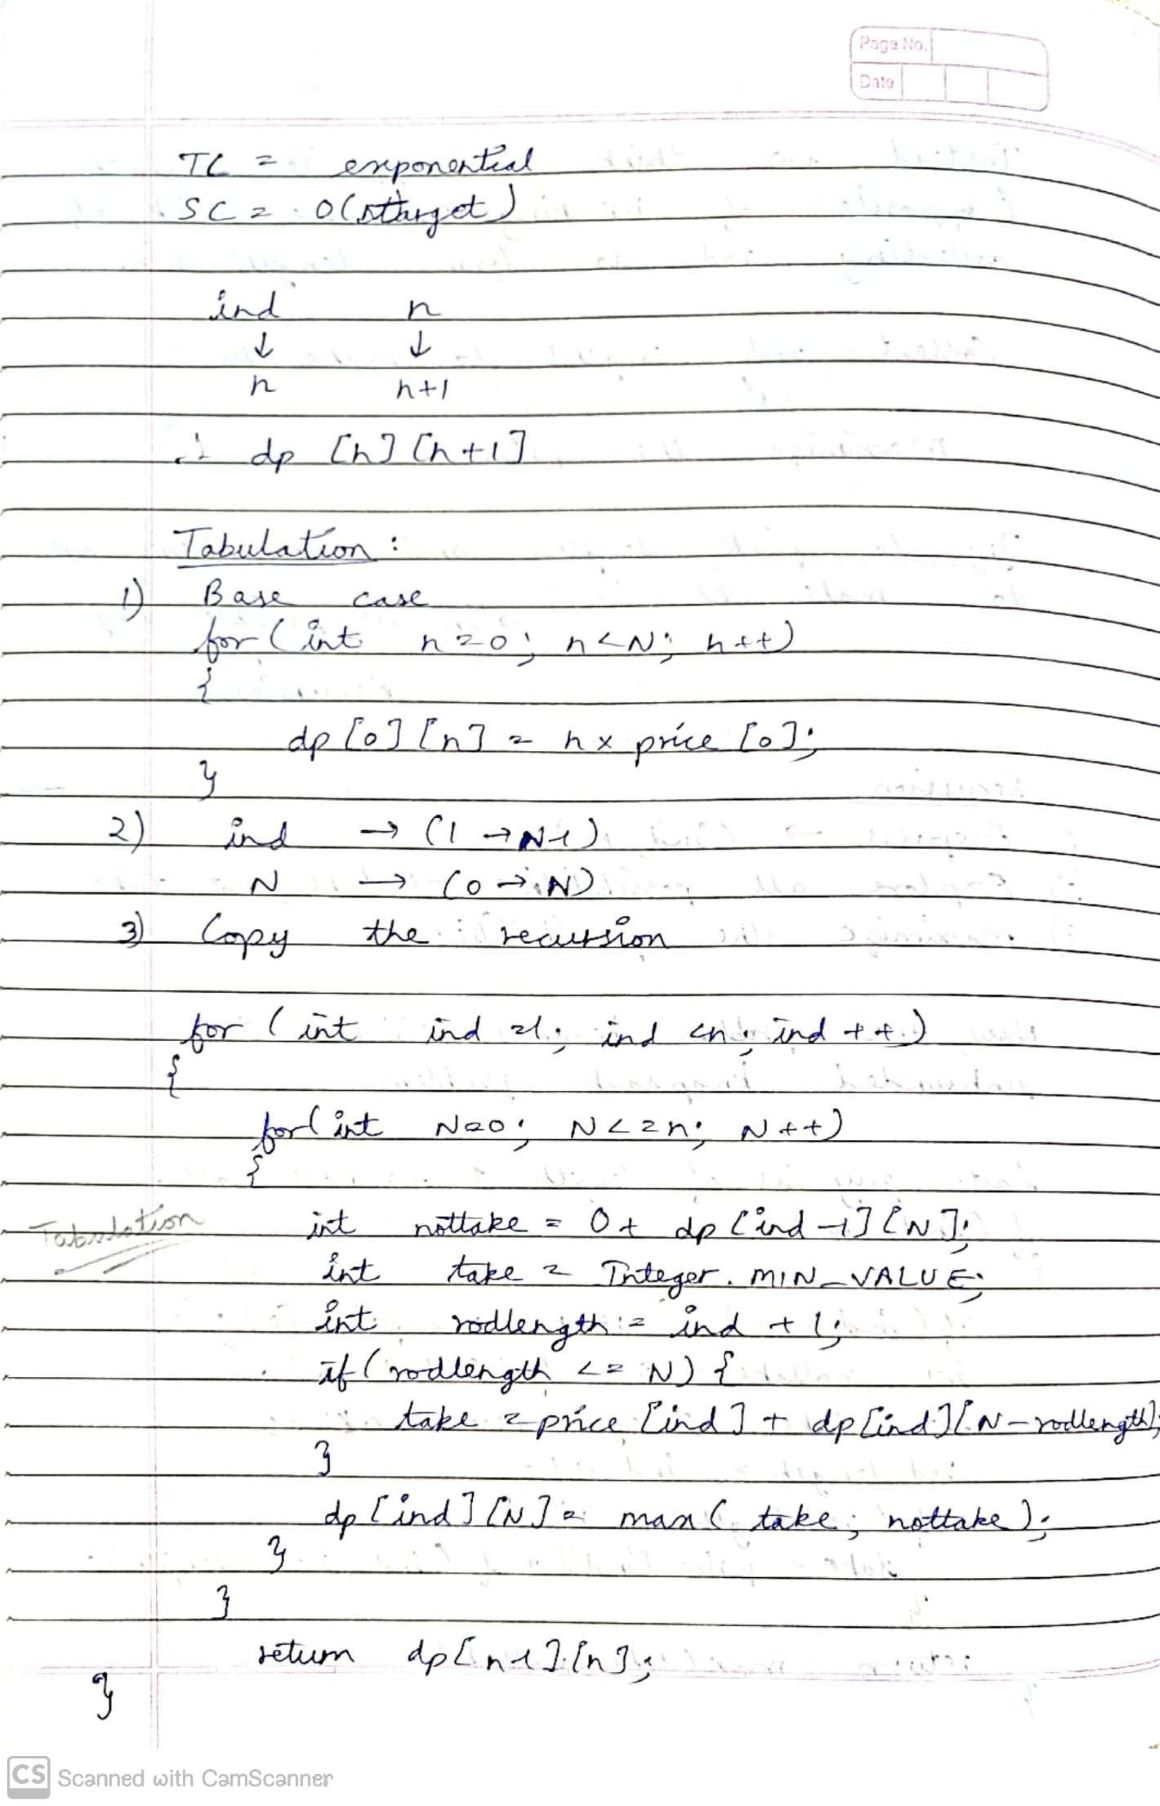 Page No.
Date
TC = exponential
SC = O(target)
ind n
↓ ↓
n n+1
∴ dp [n] [n+1]
Tabulation :
1) Base case
for (int n=0; n<N; n++)
{
dp [0] [n] = n x price [0];
}
2) ind → (1 → N-1)
N → (0 → N)
3) Copy the recursion
for (int ind =1; ind <n; ind ++)
{
for(int N=0; N<=n; N++)
{
Tabulation
int nottake = 0+ dp [ind -1] [N];
int take = Integer. MIN_VALUE;
int rodlength = ind + 1;
if (rodlength <= N) {
take = price [ind] + dp [ind] [N-rodlength];
}
dp [ind] [N] = max ( take; nottake );
}
}
return dp [n-1] [n];
}
CS Scanned with CamScanner